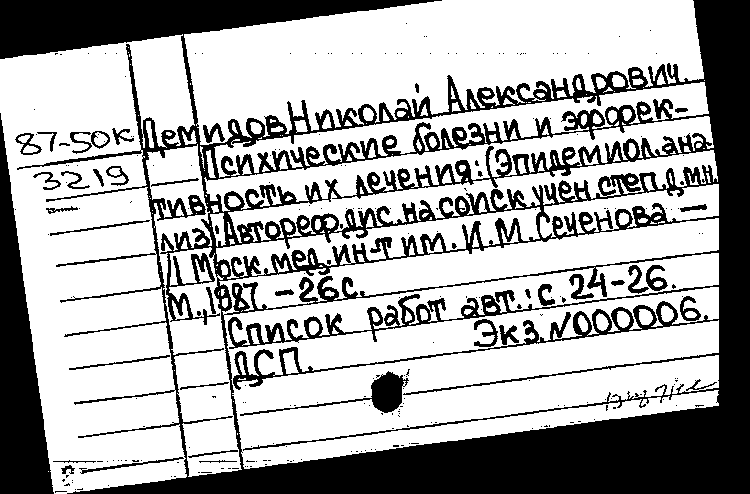 87-50к Демидов, Николай Александрович.
3219 Психические болезни и эффек-
тивность их лечения: (Эпидемиол. ана-
лиз): Автореф. дис. на соиск. учен. степ. д. м. н.
/1 Моск. мед. ин-т им. И. М. Сеченова. —
М., 1987. - 26 с.
Список работ авт.: с. 24-26.
ДСП. Экз. N000006.